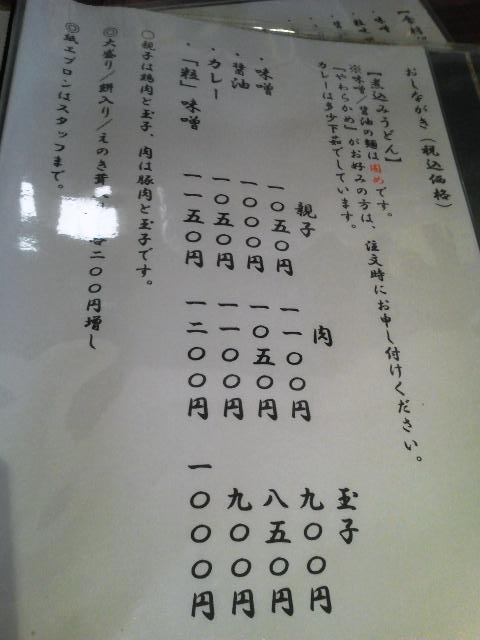 おしながき(税込価格)
【煮込みうどん】
※味噌/醤油の麺は固めです。
「やわらかめ」がお好みの方は、注文時にお申し付けください。
カレーは多少下茹でしています。
親子 肉 玉子
・味噌 一〇五〇円 一一〇〇円 九〇〇円
・醤油 一〇〇〇円 一〇五〇円 八五〇円
・カレー 一〇五〇円 一一〇〇円 九〇〇円
・「粒」味噌 一一五〇円 一二〇〇円 一〇〇〇円
〇親子は鶏肉と玉子、肉は豚肉と玉子です。
◎大盛り/餅入り/えのき茸、 二〇〇円増し
◎紙エプロンはスタッフまで。